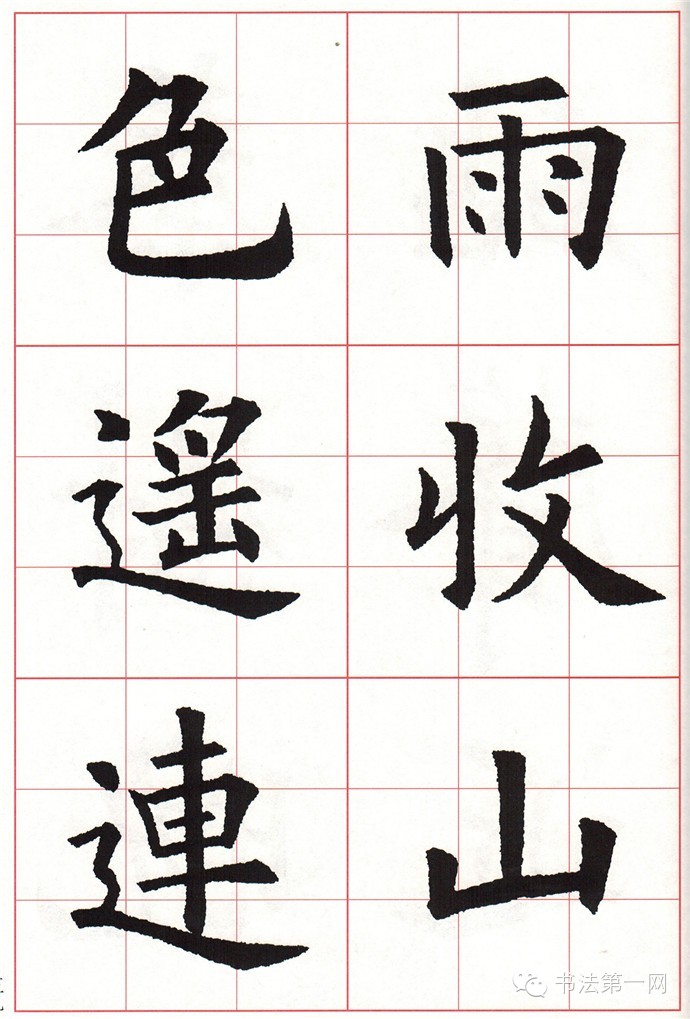 雨收山
色遥連
书法第一网